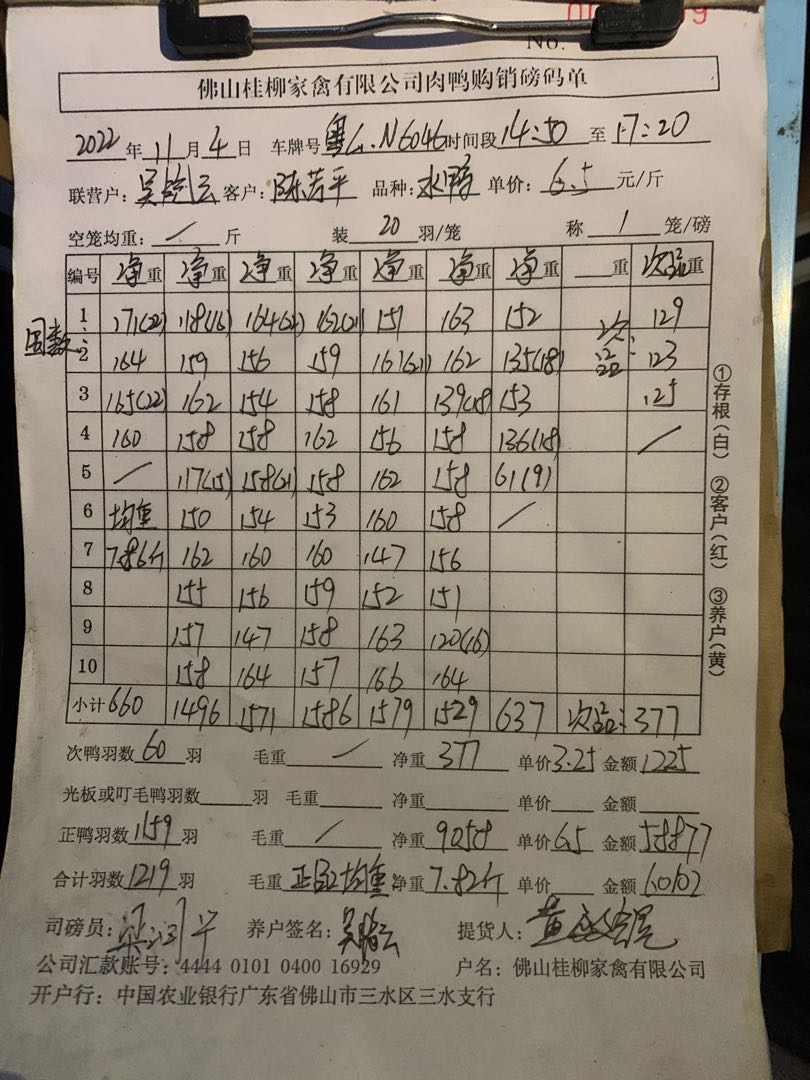 No.
佛山桂柳家禽有限公司肉鸭购销磅码单
2022年11月4日 车牌号粤G.N6046时间段14:50至17:20
联营户: 吴 云 客户: 陈芳平 品种: 水鸭 单价: 6.5 元/斤
空笼均重: / 斤 装 20 羽/笼 称 1 笼/磅
编号 净重 净重 净重 净重 净重 净重 净重 重 次品重
1 171(22) 118(16) 164(21) 162(21) 151 163 152 次 129
2 164 159 156 159 161(21) 162 135(18) 品: 123
3 165(22) 162 154 158 161 139(18) 153 125
4 160 158 158 162 156 158 136(18) /
5 / 117(15) 158(21) 158 162 158 61(9)
6 均重 150 154 153 160 158 /
7 7.86斤 162 160 160 147 156
8 155 156 159 152 151
9 157 147 158 163 120(16)
10 158 164 157 166 164
小计 660 1496 1571 1586 1579 1529 637 次品: 377
次鸭羽数 60 羽 毛重 / 净重 377 单价 3.25 金额 1225
光板或叮毛鸭羽数 羽 毛重 净重 单价 金额
正鸭羽数 1159 羽 毛重 / 净重 9058 单价 6.5 金额 58877
合计羽数 1219 羽 毛重 正品均重 净重 7.82斤 单价 金额 60102
司磅员: 梁 平 养户签名: 吴 云 提货人: 黄
公司汇款账号: 4444 0101 0400 16929 户名: 佛山桂柳家禽有限公司
开户行: 中国农业银行广东省佛山市三水区三水支行
①存根(白) ②客户(红) ③养户(黄)